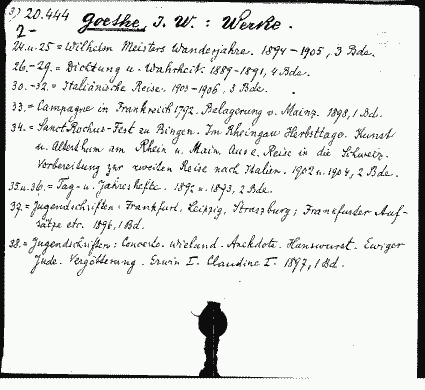 3) 20.444 Goethe, J. W.: Werke.
2-
24.u.25 = Wilhelm Meisters Wanderjahre. 1894-1905, 3 Bde.
26.-29. = Dichtung u. Wahrheit. 1889-1891, 4 Bde.
30.-32. = Italiänische Reise. 1903-1906, 3 Bde.
33. = Campagne in Frankreich 1792. Belagerung v. Mainz. 1898, 1 Bd.
34. = Sanct Rochus-Fest zu Bingen. Im Rheingau Herbsttage. Kunst
u. Alterthum am Rhein u. Main. Aus e. Reise in die Schweiz.
Vorbereitung zur zweiten Reise nach Italien. 1902 u. 1904, 2 Bde.
35.u.36. = Tag- u. Jahreshefte. 1892 u. 1893, 2 Bde.
37. = Jugendschriften: Frankfurt, Leipzig, Straszburg; Frankfurter Auf-
sätze etc. 1896, 1 Bd.
38. = Jugendschriften: Concerto. Wieland. Anekdote. Hanswurst. Ewiger
Jude. Vergötterung. Erwin I. Claudine I. 1897, 1 Bd.